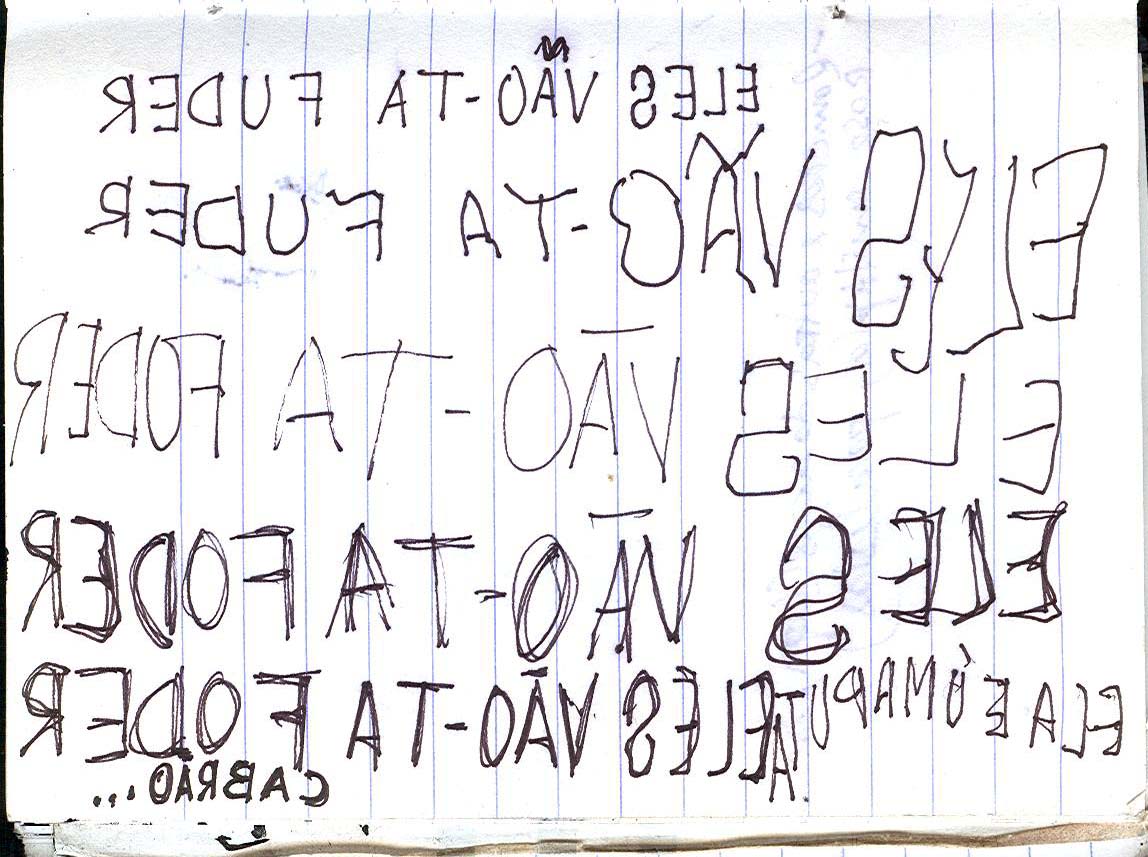 ELES VÃO-TA FUDER
VÃO-TA FUDER
ELES VÃO-TA FODER
ELES VÃO-TA FODER
ELA É UMA PUTA.
ELES VÃO-TA FODER
CABRÃO...